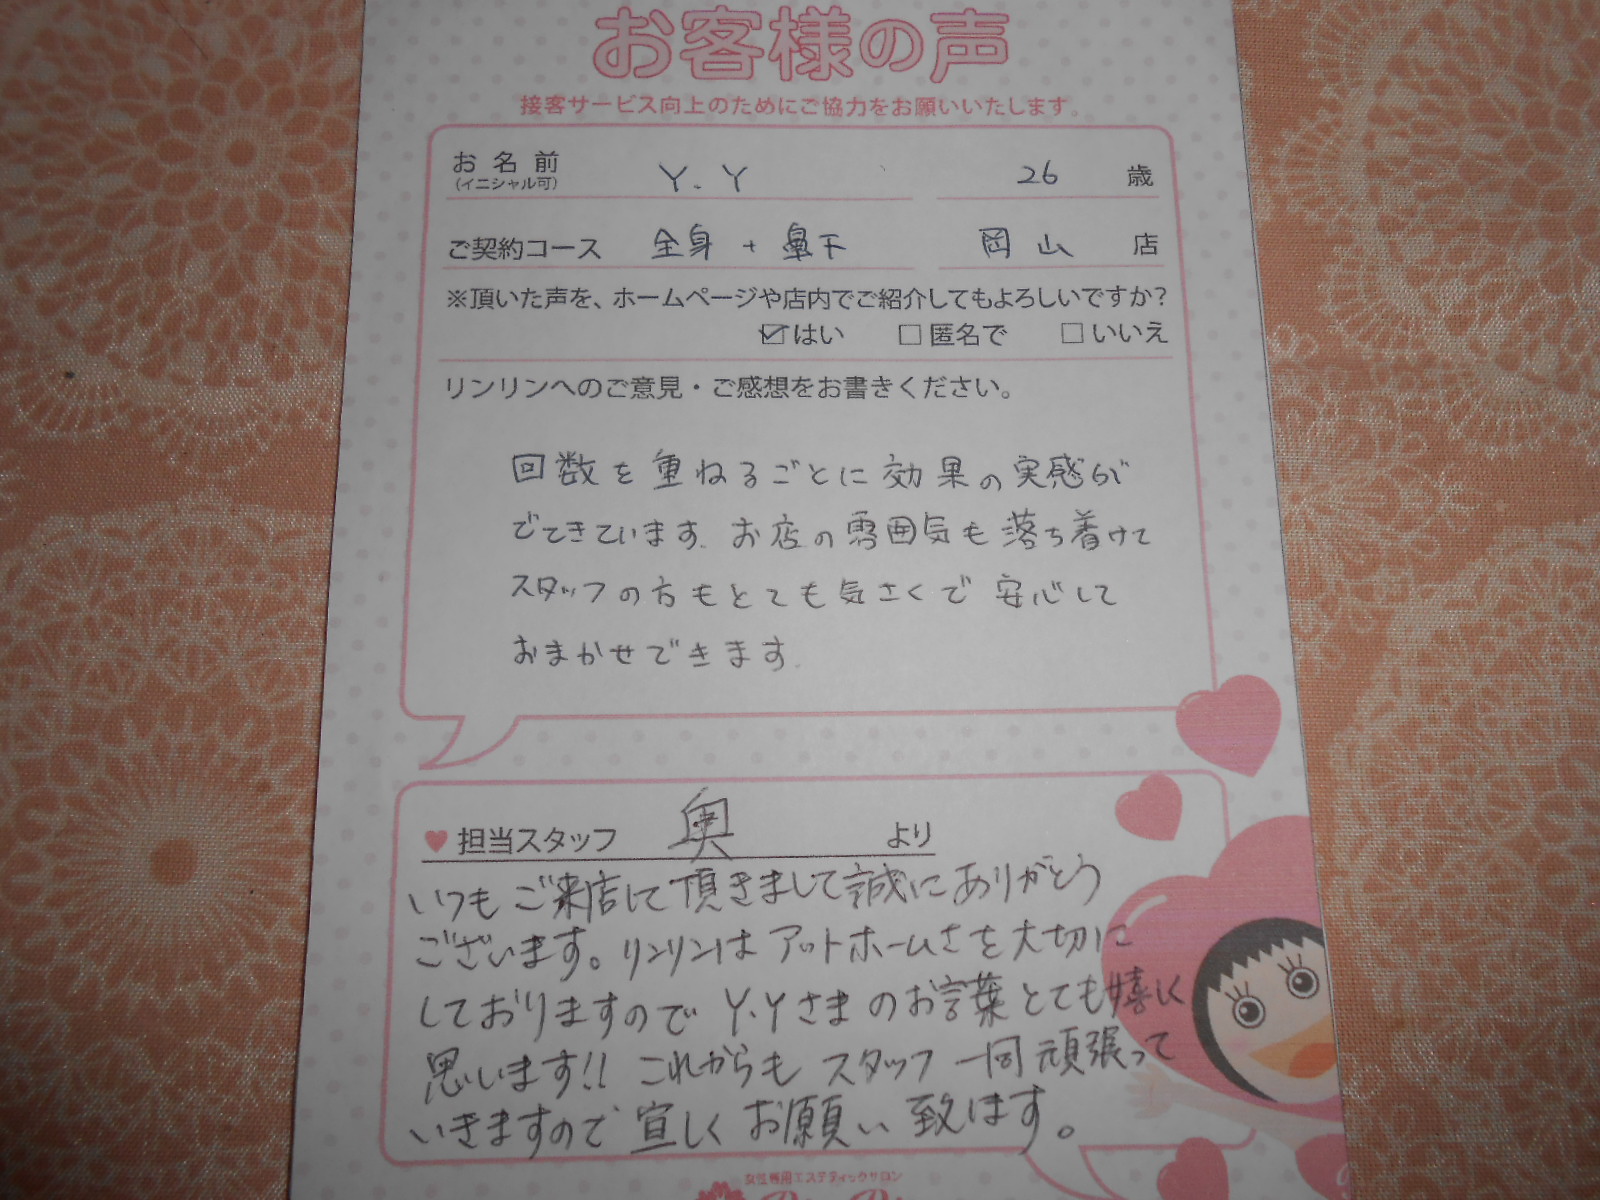 お客様の声
接客サービス向上のためにご協力をお願いいたします。
お名前 Y.Y 26 歳
(イニシャル可)
ご契約コース 全身+鼻下 岡山 店
※頂いた声を、ホームページや店内でご紹介してもよろしいですか?
☑はい □匿名で □いいえ
リンリンへのご意見・ご感想をお書きください。
回数を重ねるごとに効果の実感が
でてきています。お店の雰囲気も落ち着けて
スタッフの方もとても気さくで安心して
おまかせできます。
♥担当スタッフ 奥 より
いつもご来店して頂きまして誠にありがとう
ございます。リンリンはアットホームさを大切に
しておりますのでY.Yさまのお言葉とても嬉しく
思います!!これからもスタッフ一同頑張って
いきますので宜しくお願い致します。
女性専用エステティックサロン